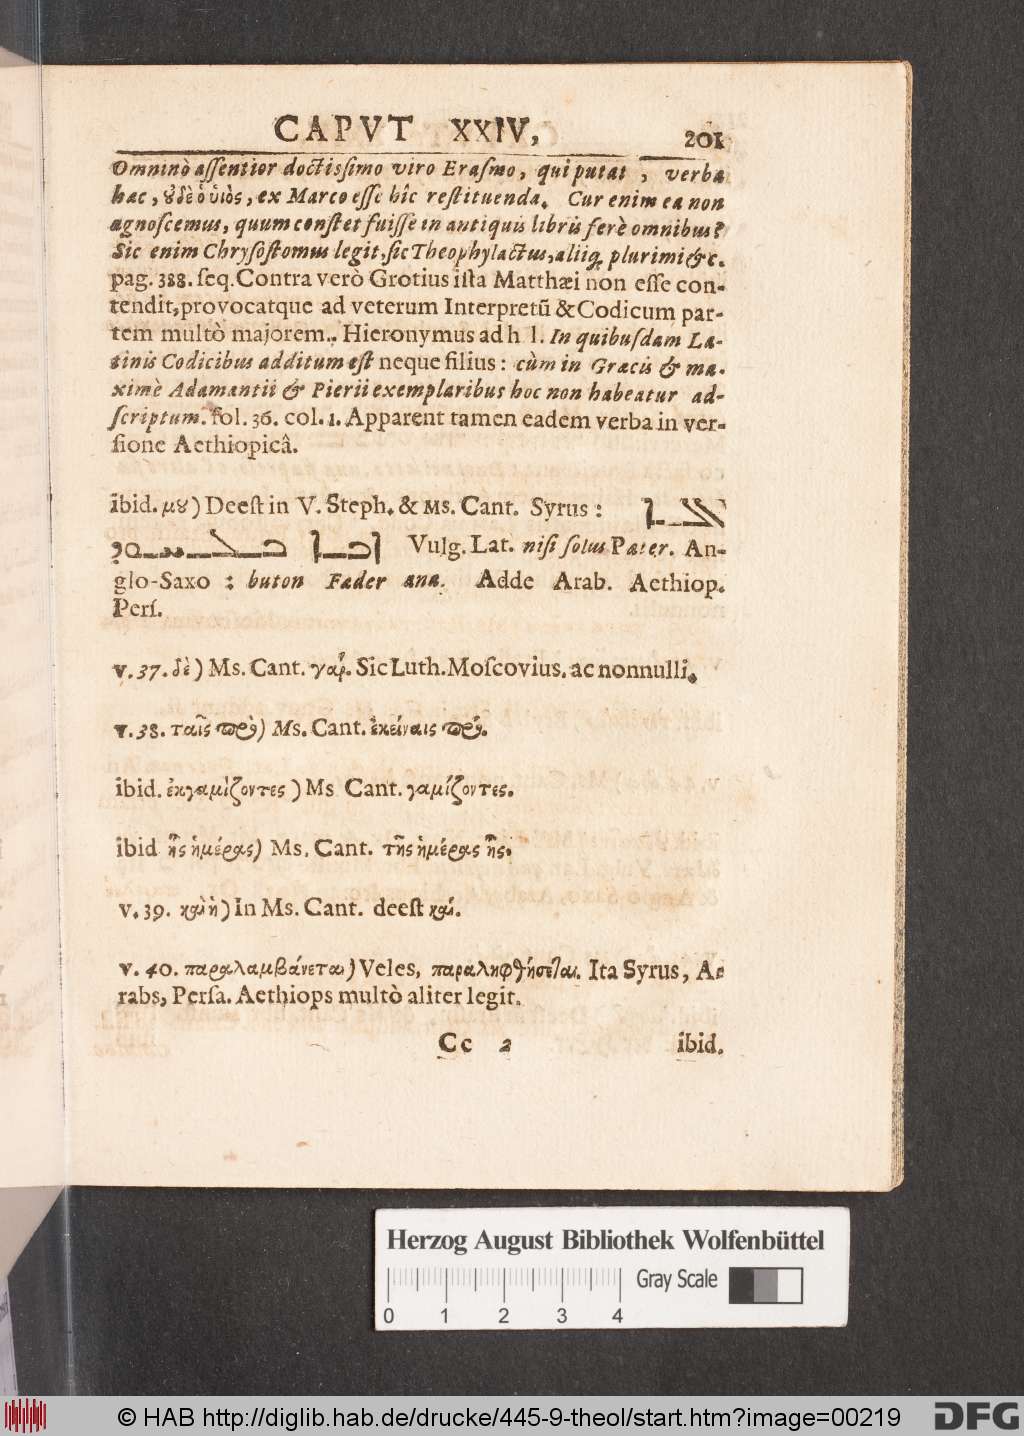 CAPVT XXIV, 201
Omninò assentior doctissimo viro Erasmo, qui putat, verba
hæc, ȣ̓δὲ ὁ ὑιὸς, ex Marco esse hîc restituenda. Cur enim ea non
agnoscemus, quum constet fuisse in antiquis libris ferè omnibus?
Sic enim Chrysostomus legit, sic Theophylactus, aliiq; plurimi &c.
pag. 388. seq. Contra verò Grotius ista Matthæi non esse con-
tendit, provocatque ad veterum Interpretũ & Codicum par-
tem multò majorem. Hieronymus ad h l. In quibusdam La-
tinis Codicibus additum est neque filius: cùm in Græcis & ma-
ximè Adamantii & Pierii exemplaribus hoc non habeatur ad-
scriptum. fol. 36. col. 1. Apparent tamen eadem verba in ver-
sione Aethiopicâ.
ibid. μȣ) Deest in V. Steph. & Ms. Cant. Syrus: ܐܠܐ
ܐܒܐ Vulg. Lat. nisi solus Pater. An-
glo-Saxo : buton Fæder ana. Adde Arab. Aethiop.
Pers.
v. 37. δὲ) Ms. Cant. γαῤ. Sic Luth. Moscovius. ac nonnulli.
v. 38. ταῖς πρὸ) Ms. Cant. ἐκείναις πρὸ.
ibid. ἐκγαμίζοντες) Ms Cant. γαμίζοντες.
ibid ἧς ἡμέρας) Ms. Cant. τῆς ἡμέρας ἧς.
v. 39. καὶ ἡ) In Ms. Cant. deest καὶ.
v. 40. παραλαμβάνεται) Veles, παραληφθήσεται. Ita Syrus, A-
rabs, Persa. Aethiops multò aliter legit.
Cc 2 ibid.
Herzog August Bibliothek Wolfenbüttel
Gray Scale
0 1 2 3 4
© HAB http://diglib.hab.de/drucke/445-9-theol/start.htm?image=00219 DFG